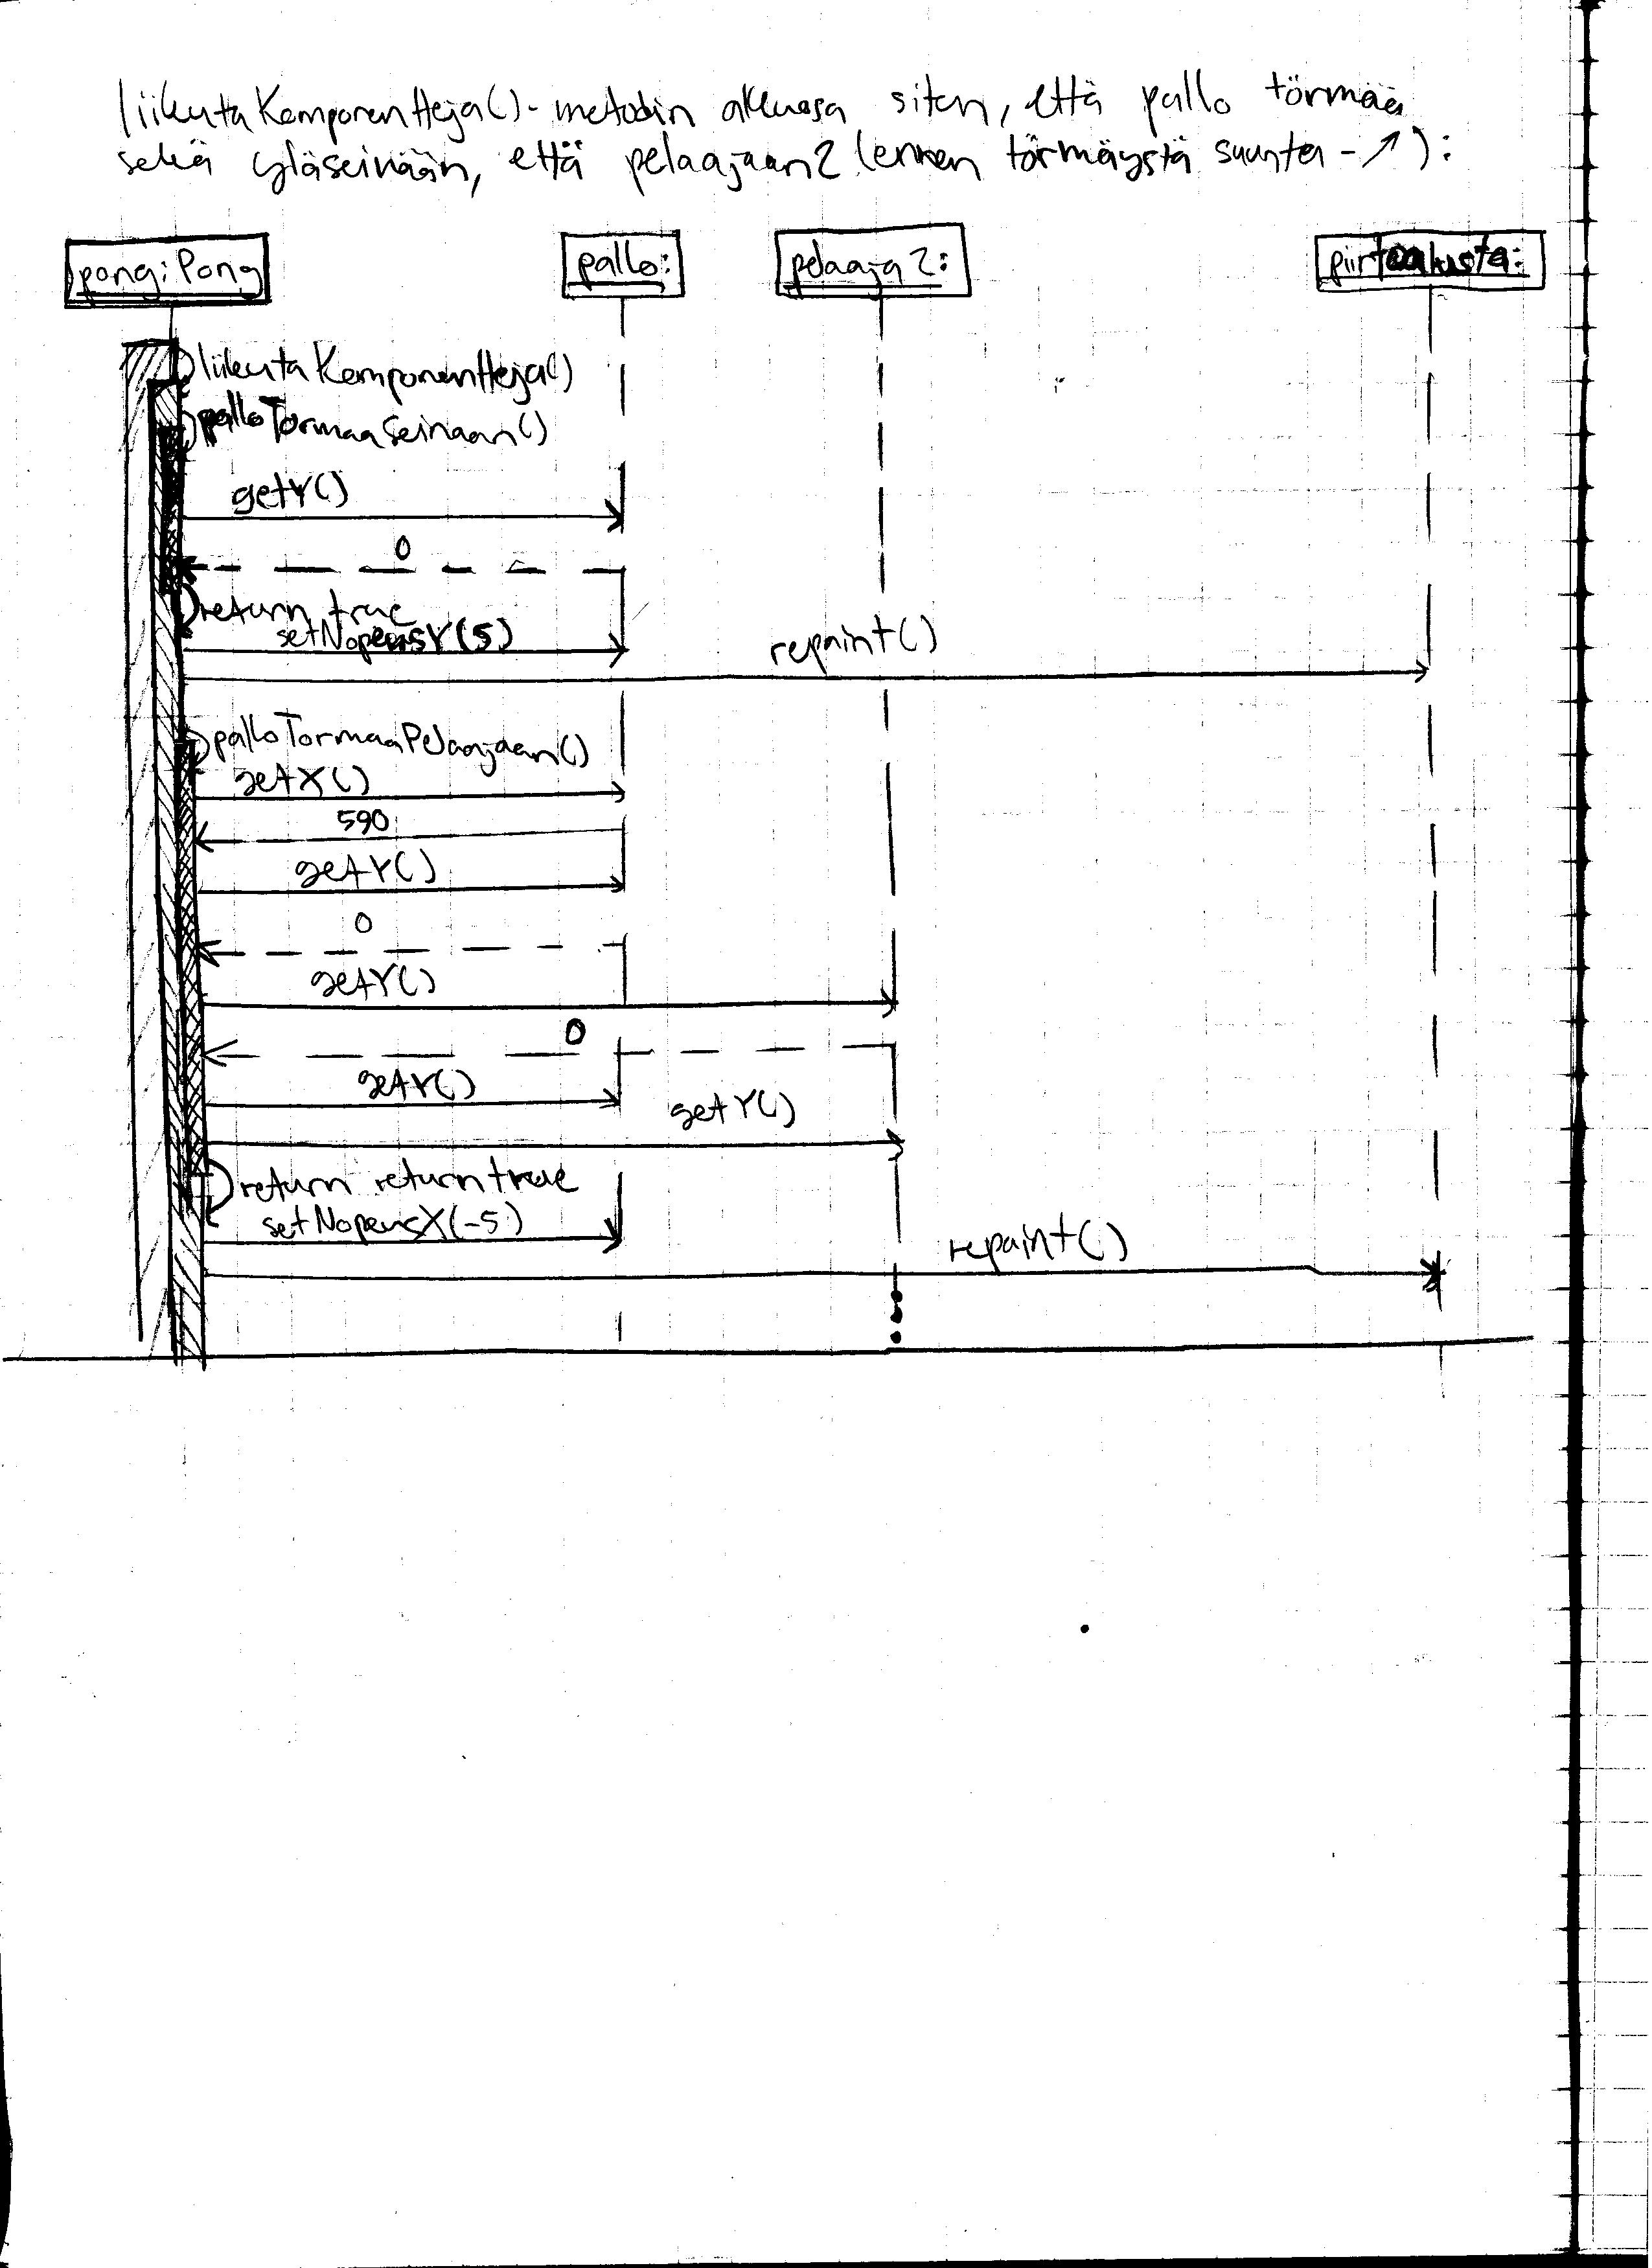 liikutaKomponentteja()-metodin alkuosa siten, että pallo törmää
sekä yläseinään, että pelaajaan2 (ennen törmäystä suunta - ↗):
pong:Pong
pallo:
pelaaja2:
piirtoalusta:
liikutaKomponentteja()
palloTormaaSeinaan()
getY()
0
return true
setNopeusY(5)
repaint()
palloTormaaPelaajaan()
getX()
590
getY()
0
getY()
0
getY()
getY()
return return true
setNopeusX(-5)
repaint()